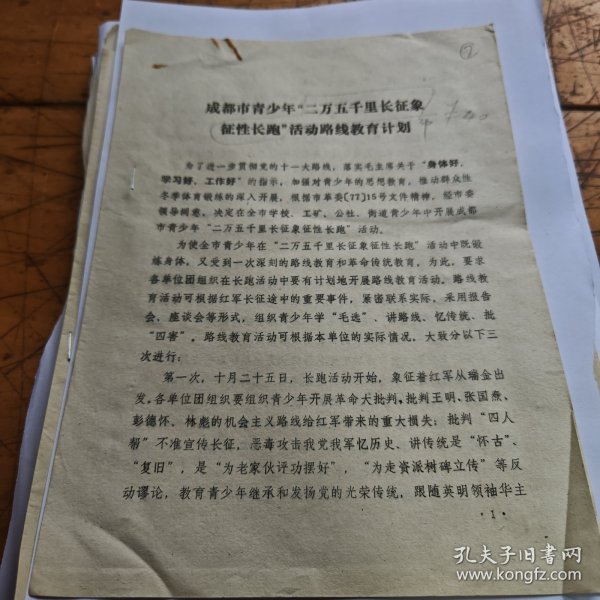 ②
成都市青少年“二万五千里长征象
征性长跑”活动路线教育计划
为了进一步贯彻党的十一大路线，落实毛主席关于“身体好，
学习好，工作好”的指示，加强对青少年的思想教育，推动群众性
冬季体育锻炼的深入开展，根据市革委(77)15号文件精神，经市委
领导同意，决定在全市学校、工矿、公社、街道青少年中开展成都
市青少年“二万五千里长征象征性长跑”活动。
为使全市青少年在“二万五千里长征象征性长跑”活动中既锻
练身体，又受到一次深刻的路线教育和革命传统教育。为此，要求
各单位团组织在长跑活动中要有计划地开展路线教育活动。路线教
育活动可根据红军长征途中的重要事件，紧密联系实际，采用报告
会、座谈会等形式，组织青少年学“毛选”、讲传统、忆传统、批
“四害”。路线教育活动可根据本单位的实际情况，大致分以下三
次进行：
第一次，十月二十五日，长跑活动开始，象征着红军从瑞金出
发。各单位团组织要组织青少年开展革命大批判，批判王明、张国焘、
彭德怀、林彪的机会主义路线给红军带来的重大损失；批判“四人
帮”不准宣传长征，恶毒攻击我党我军忆历史、讲传统是“怀古”、
“复旧”，是“为老家伙评功摆好”，“为走资派树碑立传”等反
动谬论，教育青少年继承和发扬党的光荣传统，跟随英明领袖华主
·1·
孔夫子旧书网
www.kongfz.com